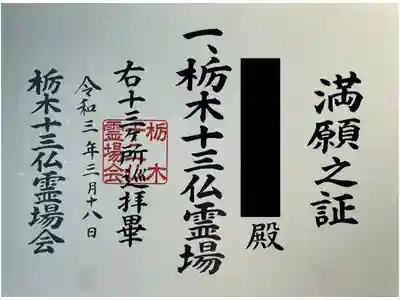 満願之証
殿
一、栃木十三仏霊場
右十三ヶ所巡拝畢
令和三年三月十八日
栃木十三仏霊場会
栃木
霊場会